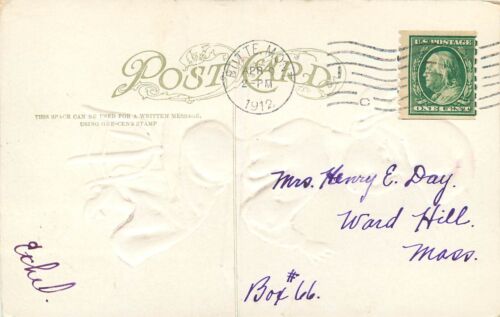 POST CARD
BUTTE, MONT.
APR
PM
1912
U.S. POSTAGE
ONE CENT
THIS SPACE CAN BE USED FOR A WRITTEN MESSAGE,
USING ONE-CENT STAMP.
Mrs. Henry E. Day.
Ward Hill.
Mass.
Box #66.
Ethel.